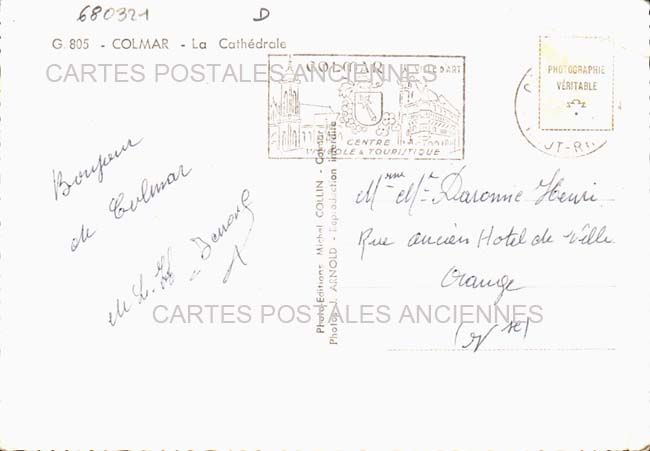 680321 D
G. 805 - COLMAR - La Cathédrale
CARTES POSTALES ANCIENNES
COLMAR VILLE D'ART
CENTRE
VINICOLE & TOURISTIQUE
PHOTOGRAPHIE
VÉRITABLE
UT-RH
Bonjour
de Colmar
Photo-Editions Michel COLLIN - Colmar
Photo J. ARNOLD - Reproduction interdite
Mme Mr Daronne Henri
Rue ancien Hotel de Ville
Orange
CARTES POSTALES ANCIENNES
(Vse)